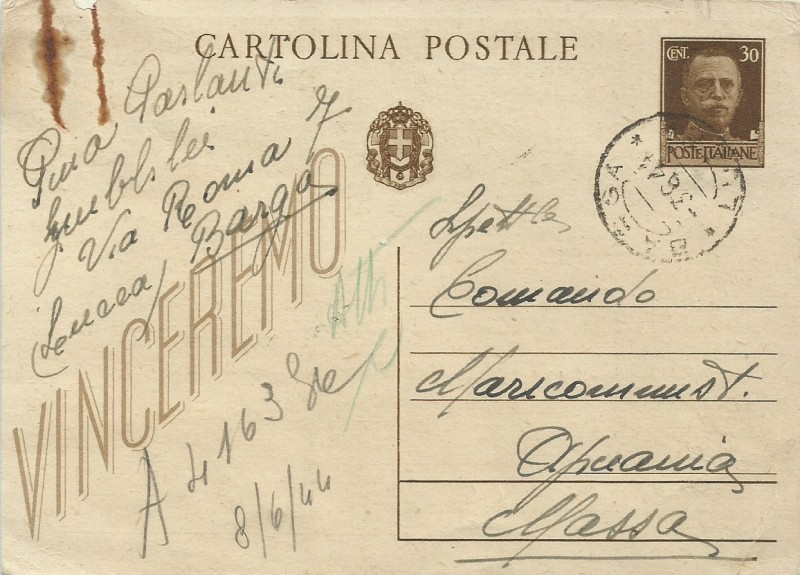 CARTOLINA POSTALE
CENT. 30
POSTE ITALIANE
Pina Parlanti
Via Roma 7
(Lucca) Barga
VINCEREMO
Spett/le
Comando
Maricommist.
Apuania
Massa
A 4163
8/6/44
BARGA